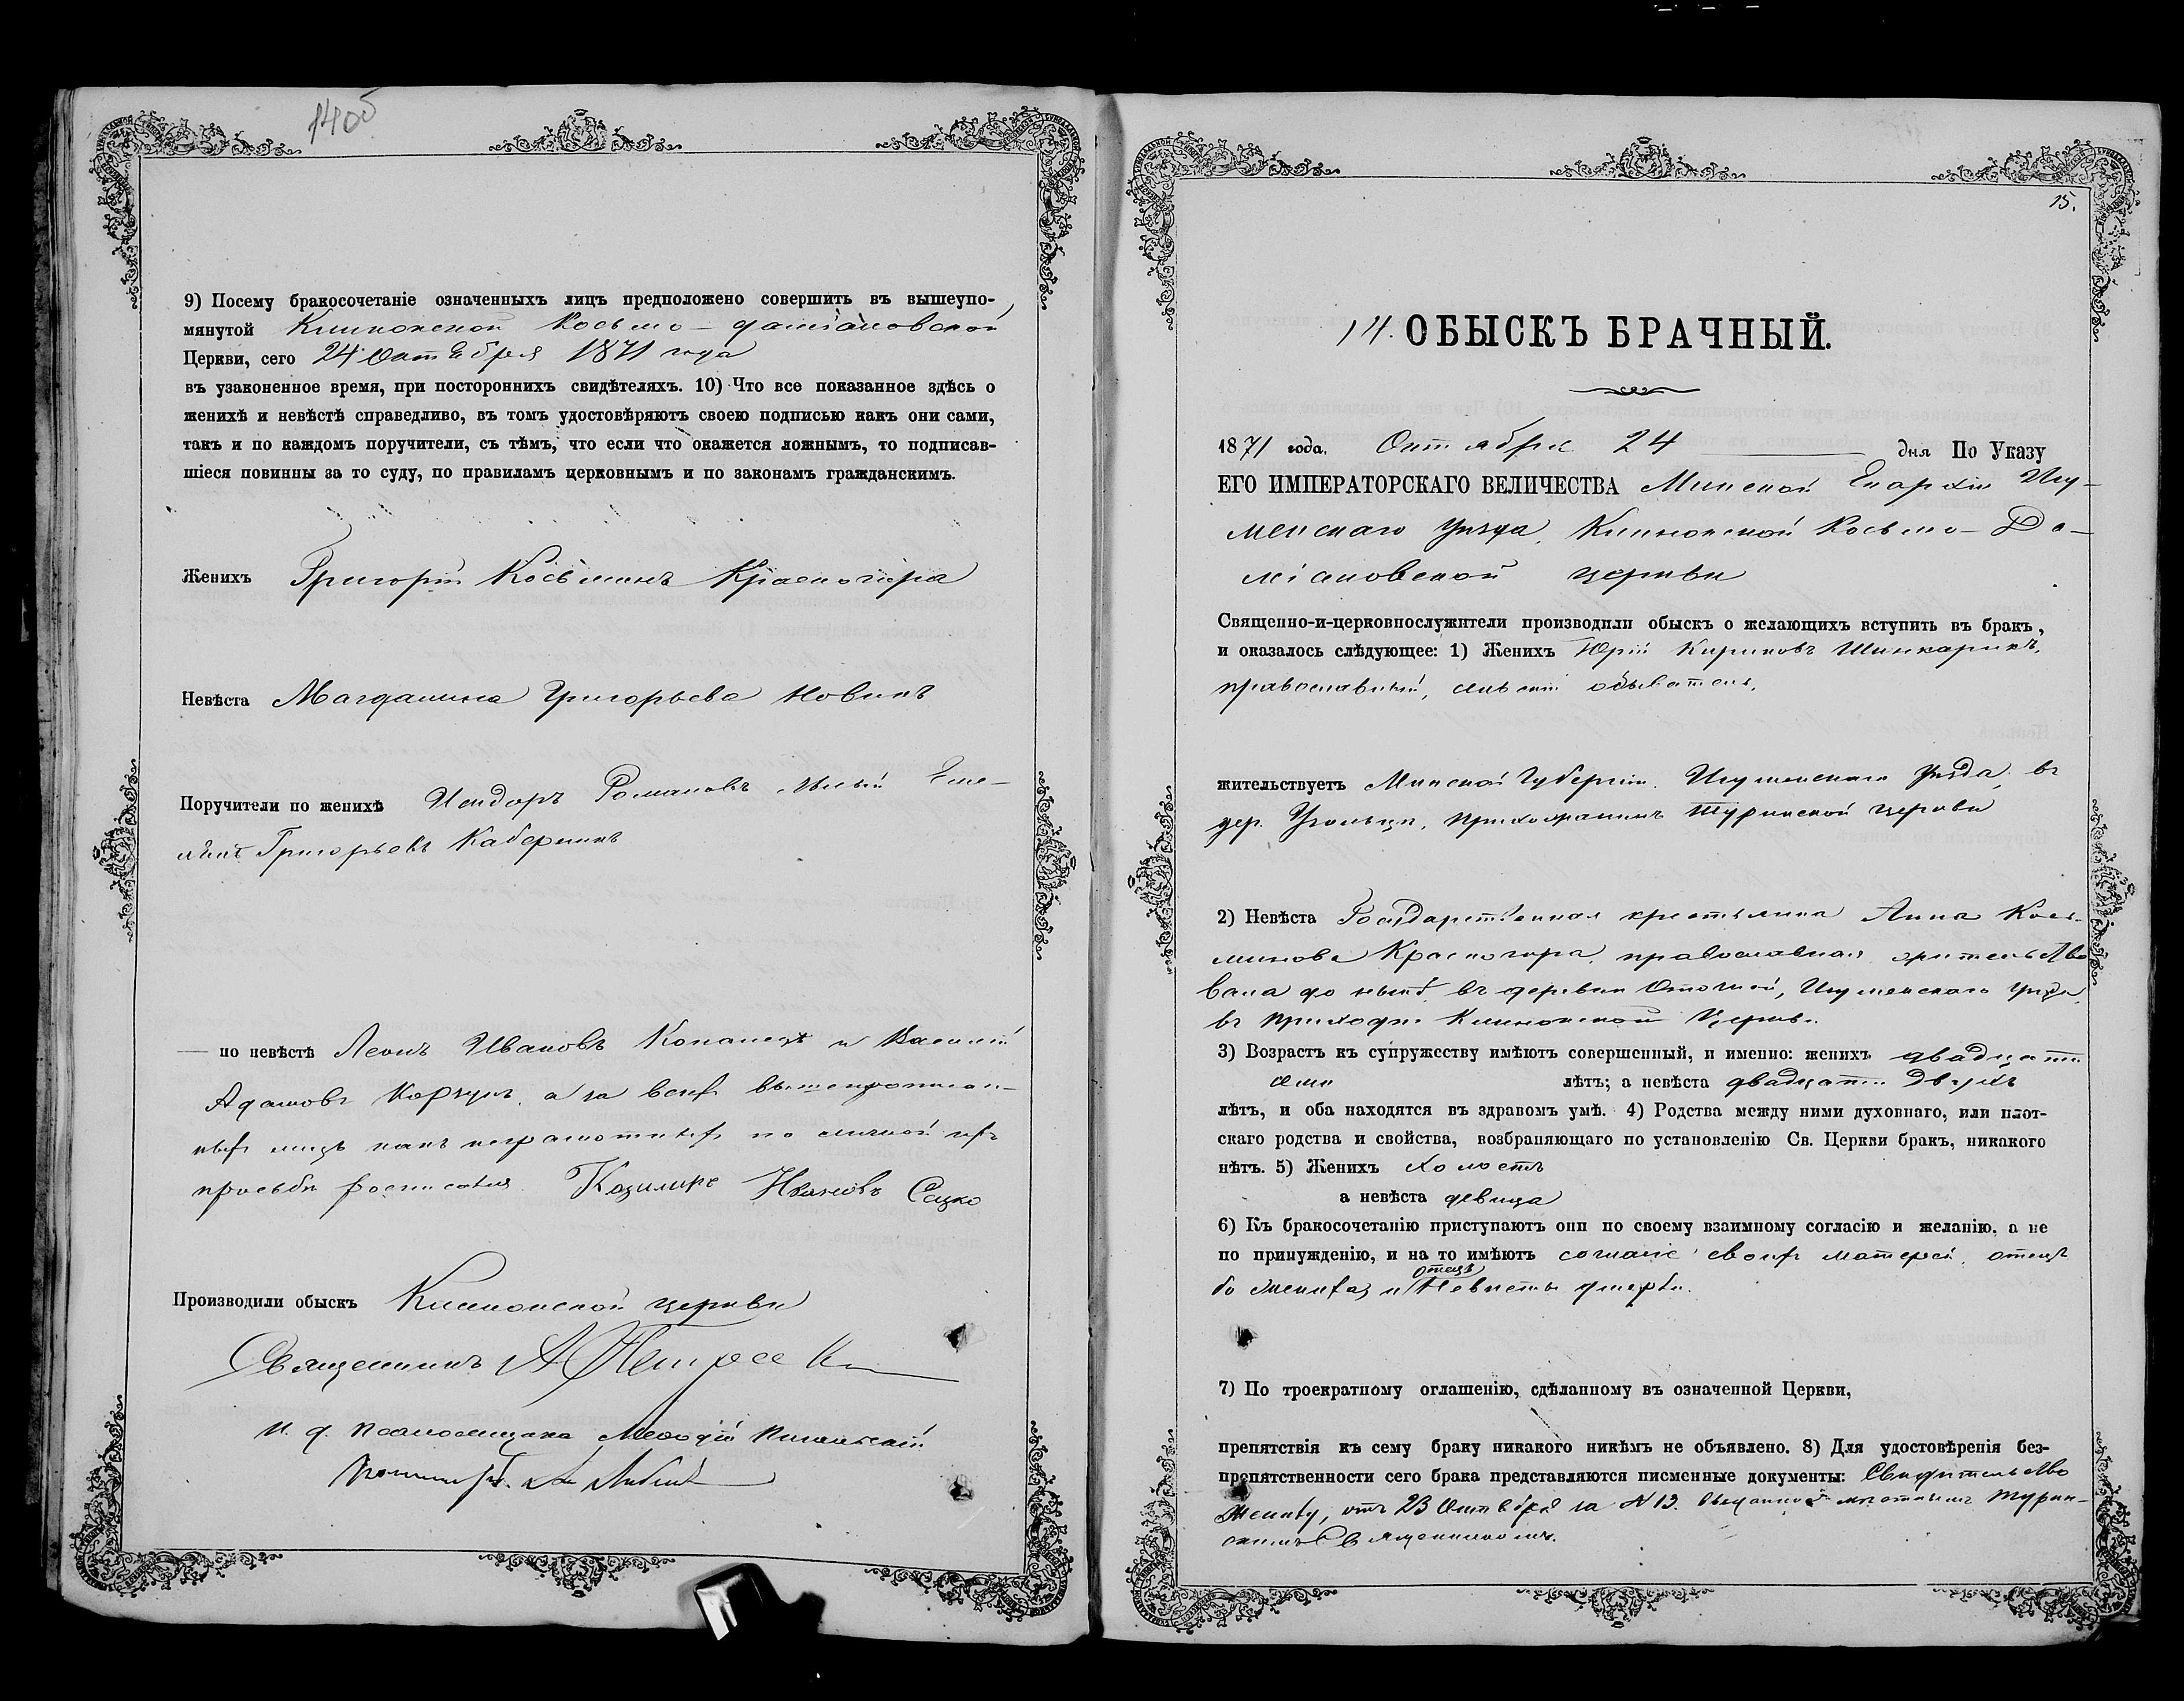 140б
9) Посему бракосочетаніе означенныхъ лицъ предположено совершить въ вышеупо-
мянутой Клинокской Косьмо-даміановской
Церкви, сего 24 Октября 1871 года
въ узаконенное время, при постороннихъ свидѣтеляхъ. 10) Что все показанное здѣсь о
женихѣ и невѣстѣ справедливо, въ томъ удостовѣряютъ своею подписью какъ они сами,
такъ и по каждомъ поручители, съ тѣмъ, что если что окажется ложнымъ, то подписав-
шіеся повинны за то суду, по правиламъ церковнымъ и по законамъ гражданскимъ.
Женихъ Григорій Косьминъ Красногира
Невѣста Магдалина Григорьева Новикъ
Поручители по женихѣ Исидоръ Романовъ
Григорьевъ
по невѣстѣ Леонъ Ивановъ и Василій
Адамовъ Корзунъ, а за всѣхъ вышепрописан-
ныхъ лицъ какъ неграмотныхъ по личной ихъ
просьбѣ росписался Казимиръ Ивановъ Сацко
Производили обыскъ Клинокской церкви
Священникъ
и. д. псаломщика
15.
14. ОБЫСКЪ БРАЧНЫЙ.
1871 года. Октября 24 дня По Указу
ЕГО ИМПЕРАТОРСКАГО ВЕЛИЧЕСТВА Минской Епархіи Игу-
менскаго уѣзда, Клинокской Косьмо-Да-
міановской церкви
Священно-и-церковнослужители производили обыскъ о желающихъ вступить въ бракъ,
и оказалось слѣдующее: 1) Женихъ Юрій Кириловъ Шинкарикъ,
православный, обыватель,
жительствуетъ Минской Губерніи, Игуменскаго уѣзда, въ
дер. прихожанинъ Туринской церкви
2) Невѣста Государственная крестьянка Анна Кось-
минова Красногира, православная, жительство
вала до нынѣ въ деревни Игуменскаго уѣзда,
въ приходѣ Клинокской Церкви.
3) Возрастъ къ супружеству имѣютъ совершенный, и именно: женихъ двадцати
семи лѣтъ; а невѣста двадцати двухъ
лѣтъ, и оба находятся въ здравомъ умѣ. 4) Родства между ними духовнаго, или плот-
скаго родства и свойства, возбраняющаго по установленію Св. Церкви бракъ, никакого
нѣтъ. 5) Женихъ холостъ
а невѣста девица
6) Къ бракосочетанію приступаютъ они по своему взаимному согласію и желанію, а не
по принужденію, и на то имѣютъ согласіе своихъ матерей, отецъ
жениха, и отецъ Невѣсты умерли.
7) По троекратному оглашенію, сдѣланному въ означенной Церкви,
препятствія къ сему браку никакого никѣмъ не объявлено. 8) Для удостовѣренія без-
препятственности сего брака представляются писменные документы: Свидѣтельство
Жениху, отъ 23 Октября за N 13. выданное мѣстнымъ Турин-
скимъ Священникомъ.